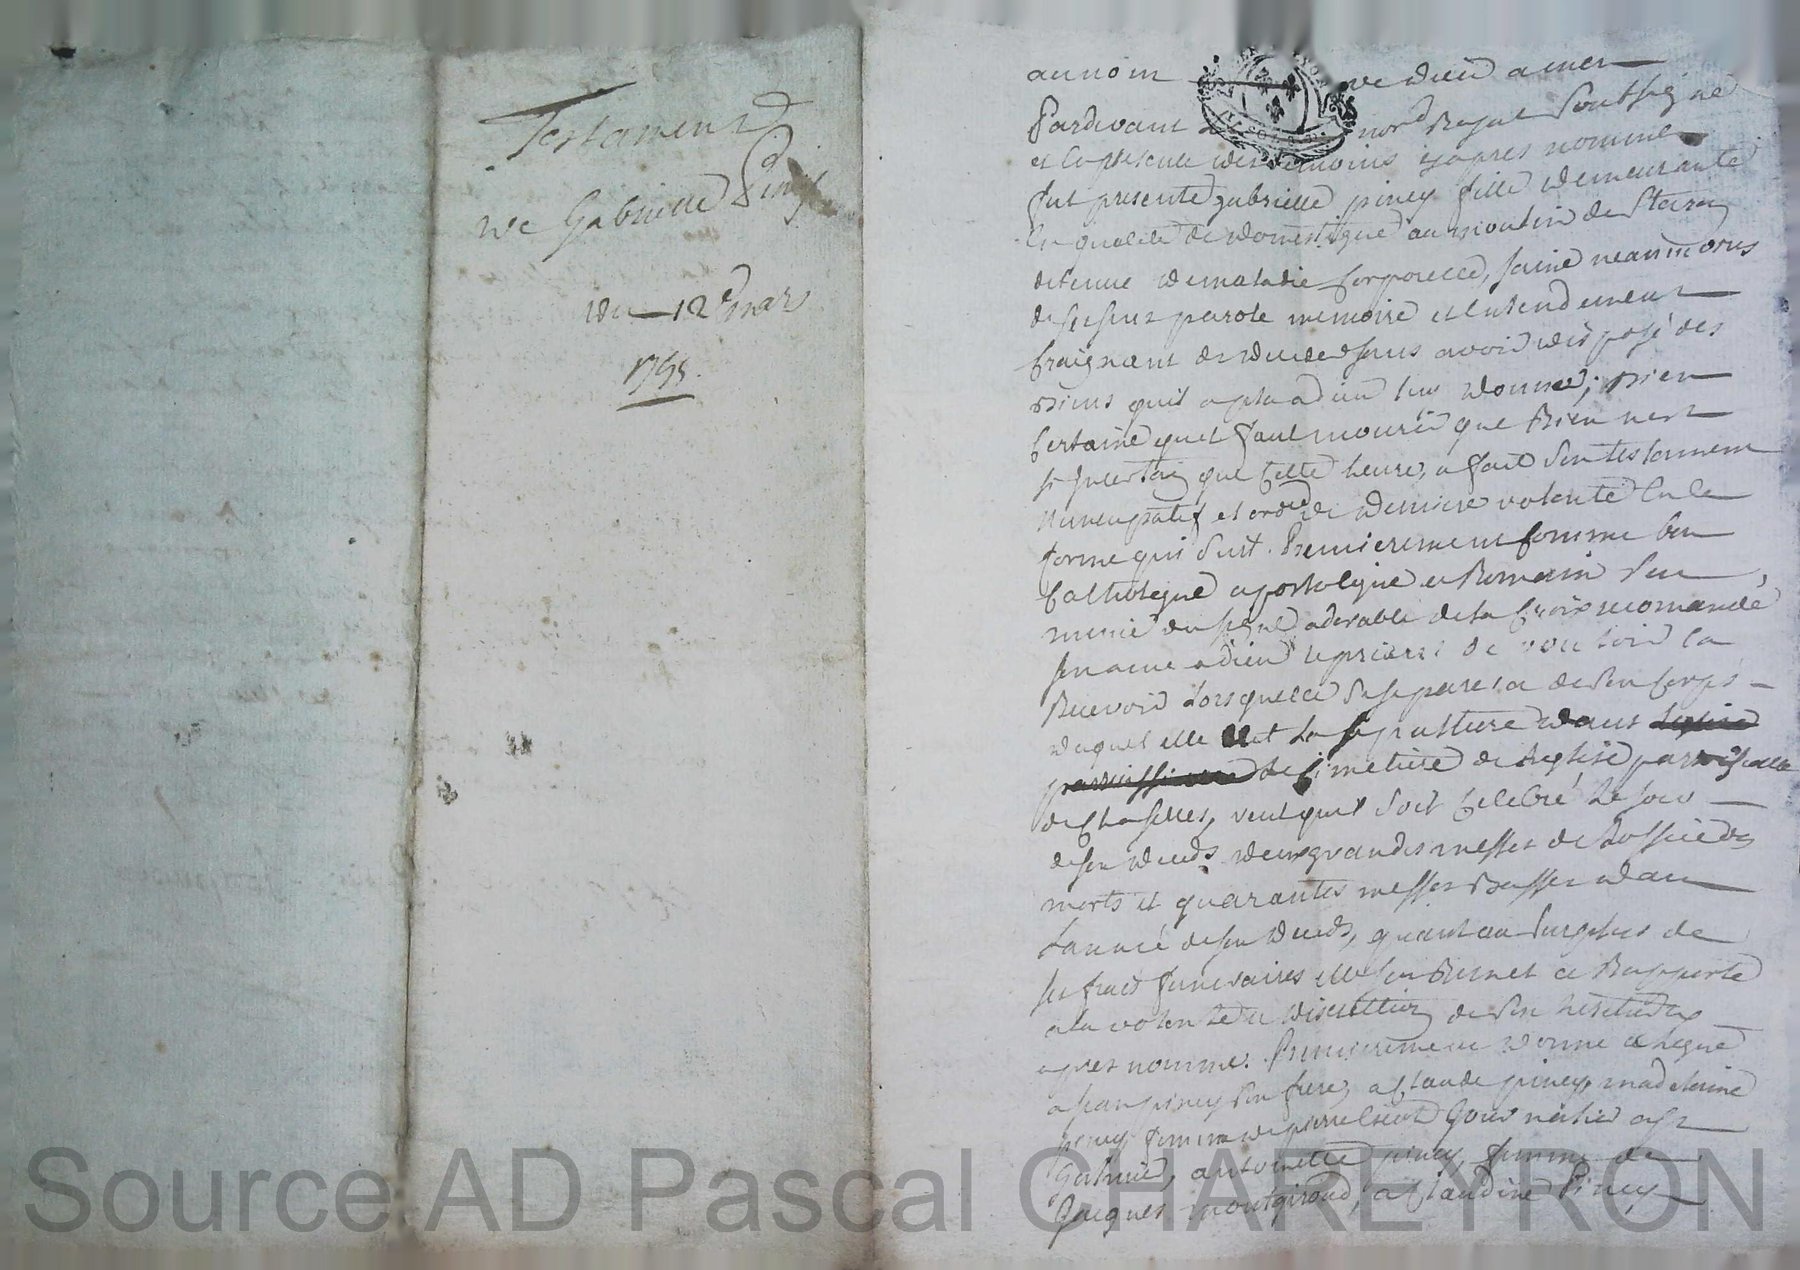 Testament
de Gabrielle Piney
du 12e mar
1755.
au nom de dieu amen
Pardevant nore Royal soubsigné
et en presence des temoins yapres nommes
fut presente gabrielle piney fille demeurante
en qualité de domestique au moulin de
detenue de maladie corporelle, saine neanmoins
de ses sens parole memoire et entendement
craignant de deceder sans avoir disposé des
biens quil a plu a dieu luy donner; bien
certaine quil faut mourir que rien nest
si incertain que cette heure, a fait son testament
nuncupatif et ordre de derniere volonté en la
forme qui suit. Premierement comme bon
catholique apostolique et Romain sest
munie du signe adorable de la croix recomandé
son ame a dieu le priant de vouloir la
Recevoir lors quelle se separera de son corps
duquel elle elit la sepulture dans leglise
parroissiale le cimetiere de leglise parroissialle
de Chaselles, veut quil soit celebré le jour
de son deceds deux grandes messes de loffice des
morts et quarantes messes basses dans
lannée de son deceds, quant au surplus de
ses frais funeraires elle sen Remet et Rapporte
a la volonté et discretion de son heritier
apres nommé. Premierement donne et legue
a jean piney son frere, a claude piney, madeleine
piney femme de pierre a st
Galmier, antoinette piney femme de
Jacques montgirond, a claudine Piney
Source AD Pascal CHAREYRON